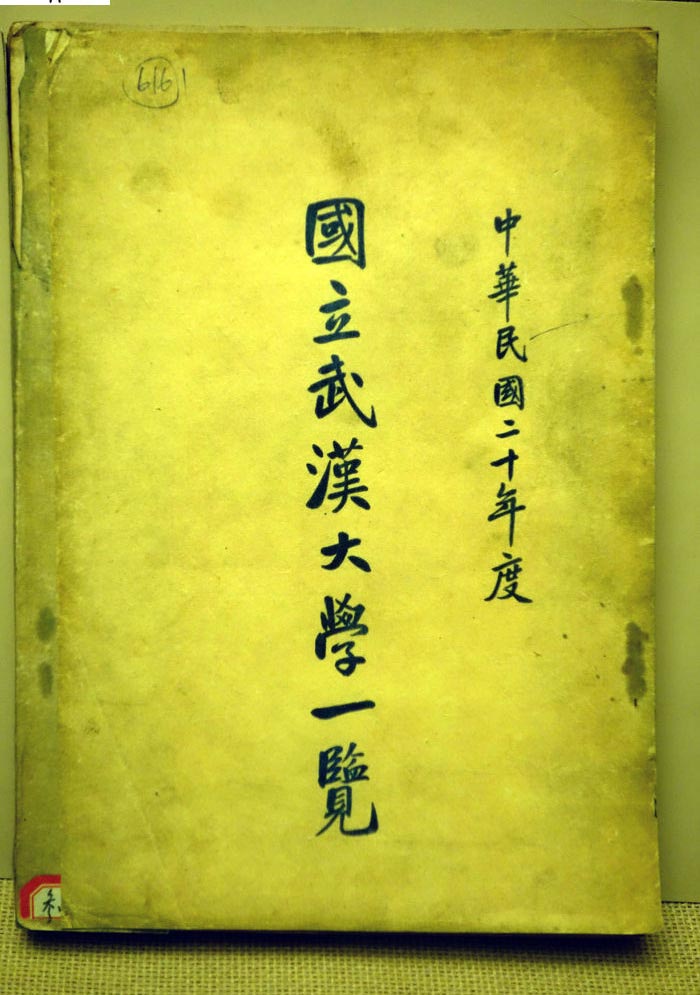 中華民國二十年度
國立武漢大學一覽
616